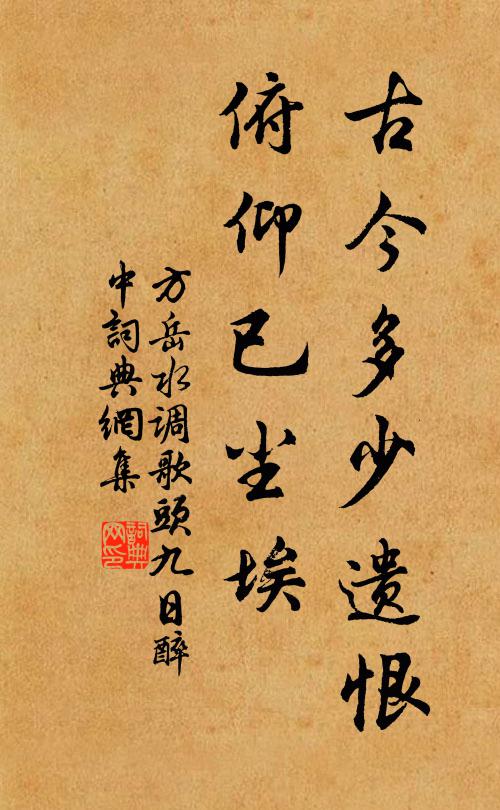 古今多少遗恨
俯仰已尘埃
方岳水调歌頭九日醉
中詞典網集
詞典
网印